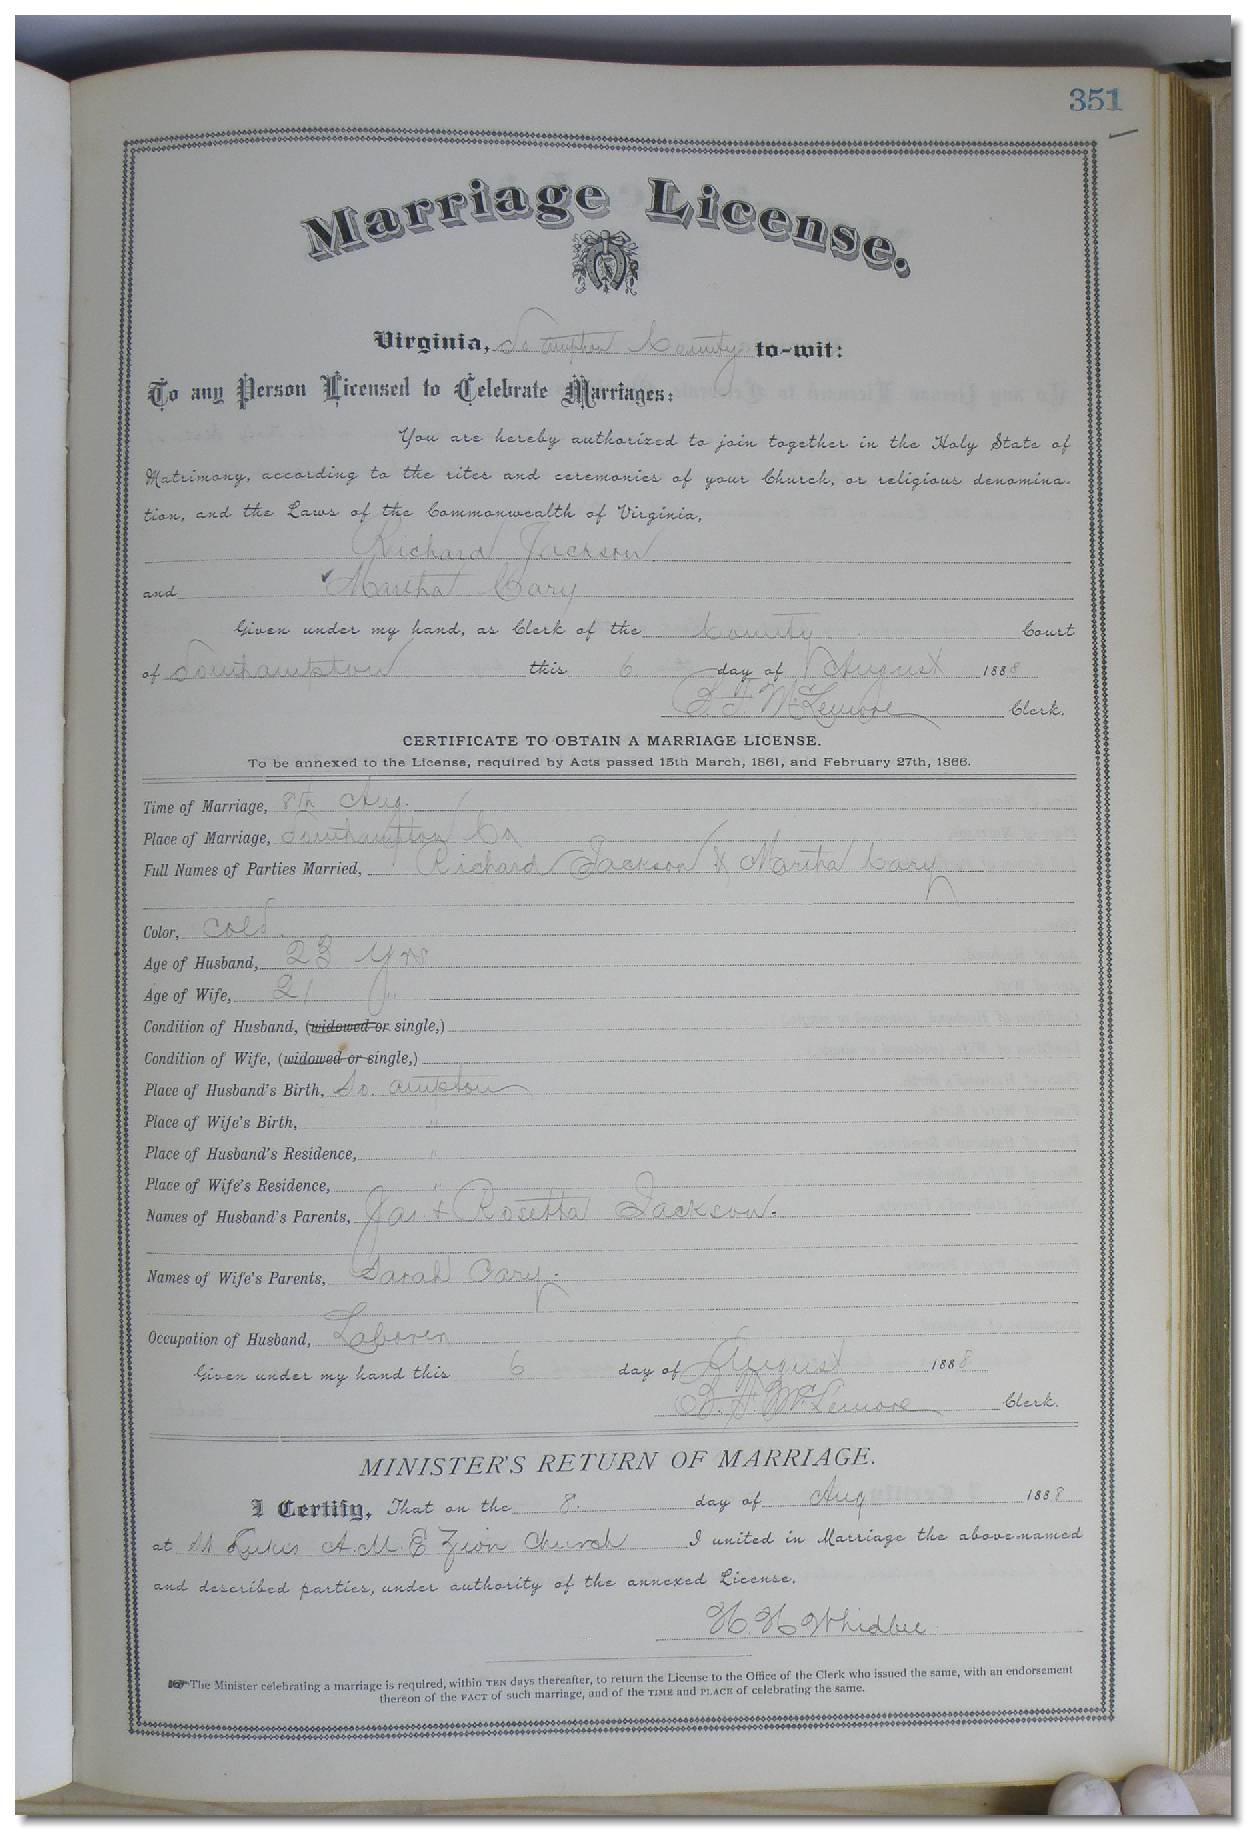 351
Marriage License.
Virginia, So ampton County to-wit:
To any Person Licensed to Celebrate Marriages:
You are hereby authorized to join together in the Holy State of
Matrimony, according to the rites and ceremonies of your Church, or religious denomina-
tion, and the Laws of the Commonwealth of Virginia,
Richard Jackson
and Martha Cary
Given under my hand, as Clerk of the County Court
of Southampton this 6 day of August 1888
McLemore Clerk.
CERTIFICATE TO OBTAIN A MARRIAGE LICENSE.
To be annexed to the License, required by Acts passed 15th March, 1861, and February 27th, 1866.
Time of Marriage, 8th Aug.
Place of Marriage, Southampton Co
Full Names of Parties Married, Richard Jackson & Martha Cary
Color, Cold.
Age of Husband, 23 Yrs
Age of Wife, 21 "
Condition of Husband, (widowed or single,)
Condition of Wife, (widowed or single,)
Place of Husband's Birth, So. ampton
Place of Wife's Birth, "
Place of Husband's Residence, "
Place of Wife's Residence, "
Names of Husband's Parents, Jas & Rosetta Jackson.
Names of Wife's Parents, Sarah Cary.
Occupation of Husband, Laborer
Given under my hand this 6 day of August 1888
McLemore Clerk.
MINISTER'S RETURN OF MARRIAGE.
I Certify, That on the 8. day of Aug 1888
at St Lukes A.M.E Zion Church I united in Marriage the above-named
and described parties, under authority of the annexed License.
H. H. Whidbee
The Minister celebrating a marriage is required, within TEN days thereafter, to return the License to the Office of the Clerk who issued the same, with an endorsement
thereon of the FACT of such marriage, and of the TIME and PLACE of celebrating the same.